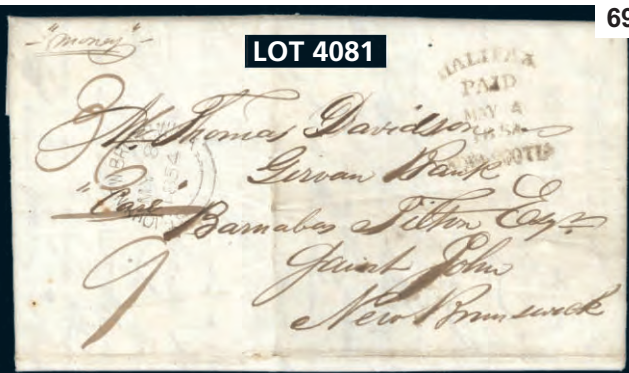 69
"Money"
LOT 4081
HALIFAX
PAID
MAY 4
1854
NOVA SCOTIA
3
Mr. Thomas Davidson
Girvan Bank
"Care"
Barnabas Tilton Esqr
Saint John
New Brunswick
9
1854